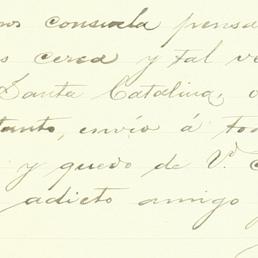 nos consuela pensa
s cerca y tal ve
Santa Catalina,
tanto, envio á to
y quedo de V.d
adicto amigo